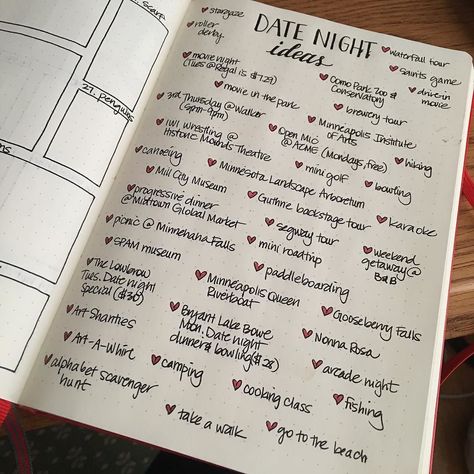 scarf
27. penguins
DATE NIGHT
ideas
stargaze
roller
derby
waterfall tour
saints game
drive-in
movie
movie night
(Tues @ Regal is $7.27)
Como Park Zoo &
Conservatory
movie in the park
brewery tour
3rd Thursday @ Walker
(5pm-9pm)
Minneapolis Institute
of Arts
hiking
IWI Wrestling @
Historic Mounds Theatre
Open Mic
@ ACME (Mondays, free)
canoeing
mini golf
bowling
Minnesota Landscape Arboretum
Mill City Museum
Guthrie backstage tour
karaoke
progressive dinner
@ Midtown Global Market
segway tour
weekend
getaway @
B&B
picnic @ Minnehaha Falls
mini roadtrip
SPAM museum
paddleboarding
The Lowbrow
Tues. Date night
Special ($30)
Minneapolis Queen
Riverboat
Gooseberry Falls
Art Shanties
Bryant Lake Bowl
Mon. Date night
dinner & bowling ($28)
Nonna Rosa
Art-A-Whirl
arcade night
alphabet scavenger
hunt
camping
cooking class
fishing
take a walk
go to the beach